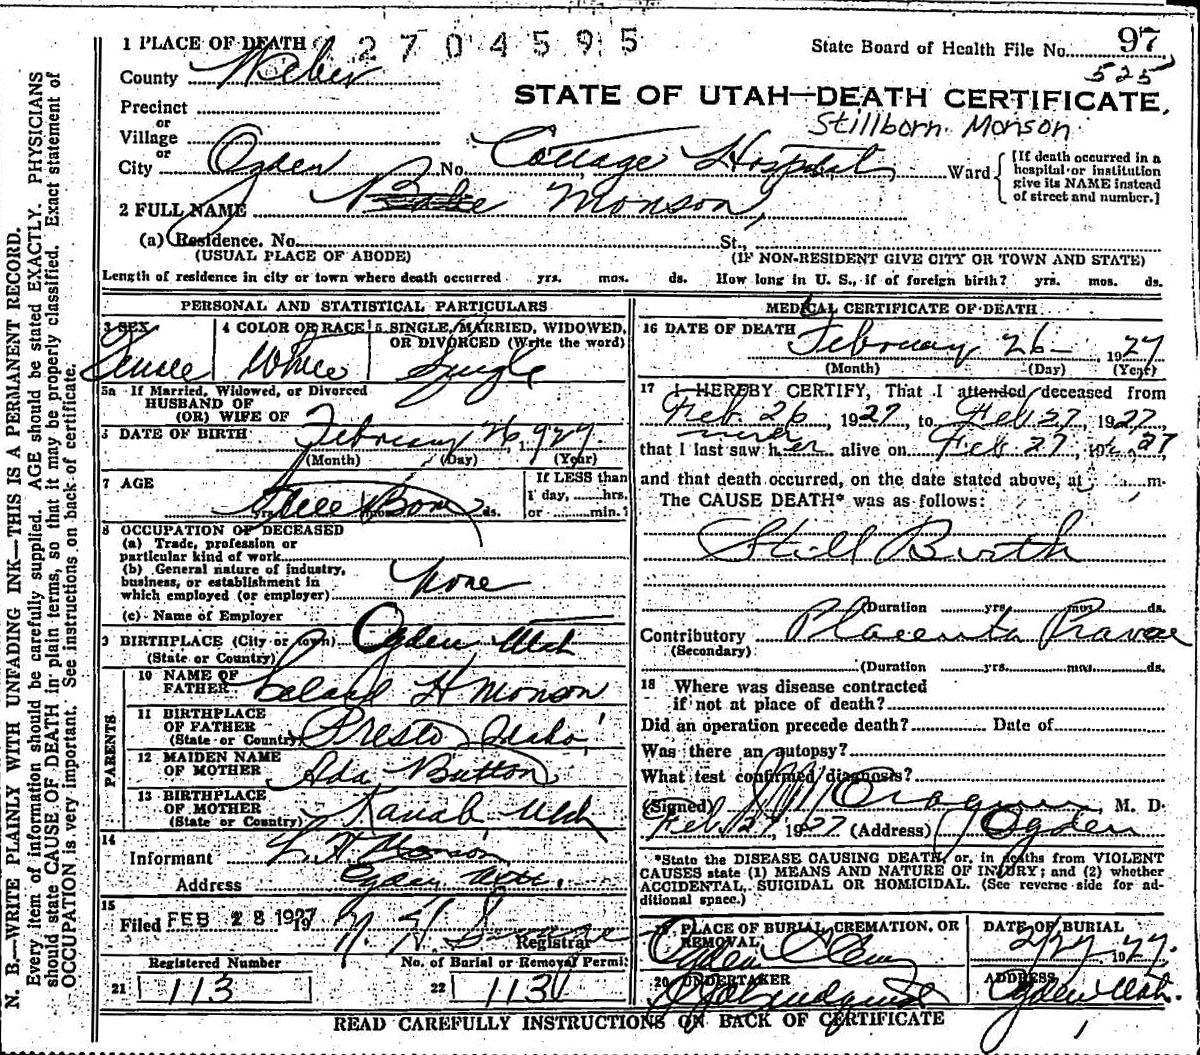 N. B.—WRITE PLAINLY WITH UNFADING INK—THIS IS A PERMANENT RECORD.
Every item of information should be carefully supplied. AGE should be stated EXACTLY. PHYSICIANS
should state CAUSE OF DEATH in plain terms, so that it may be properly classified. Exact statement of
OCCUPATION is very important. See instructions on back of certificate.
1 PLACE OF DEATH 2704595
State Board of Health File No. 97
525
County Weber
STATE OF UTAH—DEATH CERTIFICATE.
Stillborn Monson
Precinct
or
Village
or
City Ogden No. Cottage Hospital, Ward
[If death occurred in a
hospital or institution
give its NAME instead
of street and number.]
2 FULL NAME Monson
(a) Residence. No. St.,
(USUAL PLACE OF ABODE) (IF NON-RESIDENT GIVE CITY OR TOWN AND STATE)
Length of residence in city or town where death occurred yrs. mos. ds. How long in U. S., if of foreign birth? yrs. mos. ds.
PERSONAL AND STATISTICAL PARTICULARS
3 SEX 4 COLOR OR RACE 5 SINGLE, MARRIED, WIDOWED,
OR DIVORCED (Write the word)
Female White Single
5a If Married, Widowed, or Divorced
HUSBAND OF
(OR) WIFE OF
6 DATE OF BIRTH February 26, 1927
(Month) (Day) (Year)
7 AGE
If LESS than
1 day, hrs.
or min.?
yrs. mos. ds.
Still Born
8 OCCUPATION OF DECEASED
(a) Trade, profession or
particular kind of work
(b) General nature of industry,
business, or establishment in
which employed (or employer) None
(c) Name of Employer
9 BIRTHPLACE (City or town) Ogden Utah
(State or Country)
PARENTS
10 NAME OF
FATHER Leland H Monson
11 BIRTHPLACE
OF FATHER
(State or Country) Preston Idaho
12 MAIDEN NAME
OF MOTHER Ada Button
13 BIRTHPLACE
OF MOTHER
(State or Country) Kanab Utah
14
Informant L. H. Monson
Address Ogden Utah.
15
Filed FEB 28 1927 19
Registrar
Registered Number No. of Burial or Removal Permit
21 113 22 113
MEDICAL CERTIFICATE OF DEATH
16 DATE OF DEATH February 26 1927
(Month) (Day) (Year)
17 I HEREBY CERTIFY, That I attended deceased from
Feb. 26, 1927, to Feb 27, 1927,
never
that I last saw her alive on Feb 27, 27
and that death occurred, on the date stated above, at m.
The CAUSE DEATH* was as follows:
Still Birth
(Duration yrs. mos. ds.
Contributory Placenta
(Secondary)
(Duration yrs. mos. ds.
18 Where was disease contracted
if not at place of death?
Did an operation precede death? Date of
Was there an autopsy?
What test confirmed diagnosis?
(Signed) M. D.
Feb. 27, 1927 (Address) Ogden
*State the DISEASE CAUSING DEATH, or, in deaths from VIOLENT
CAUSES state (1) MEANS AND NATURE OF INJURY; and (2) whether
ACCIDENTAL, SUICIDAL OR HOMICIDAL. (See reverse side for ad-
ditional space.)
19 PLACE OF BURIAL, CREMATION, OR
REMOVAL
DATE OF BURIAL
Ogden 2/27 1927.
20 UNDERTAKER ADDRESS
Ogden Utah.
READ CAREFULLY INSTRUCTIONS ON BACK OF CERTIFICATE